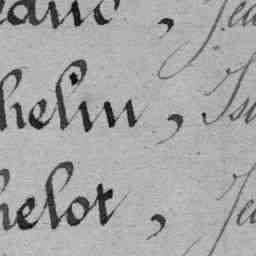 eano, Jea
helin, Isi
helot, Jea